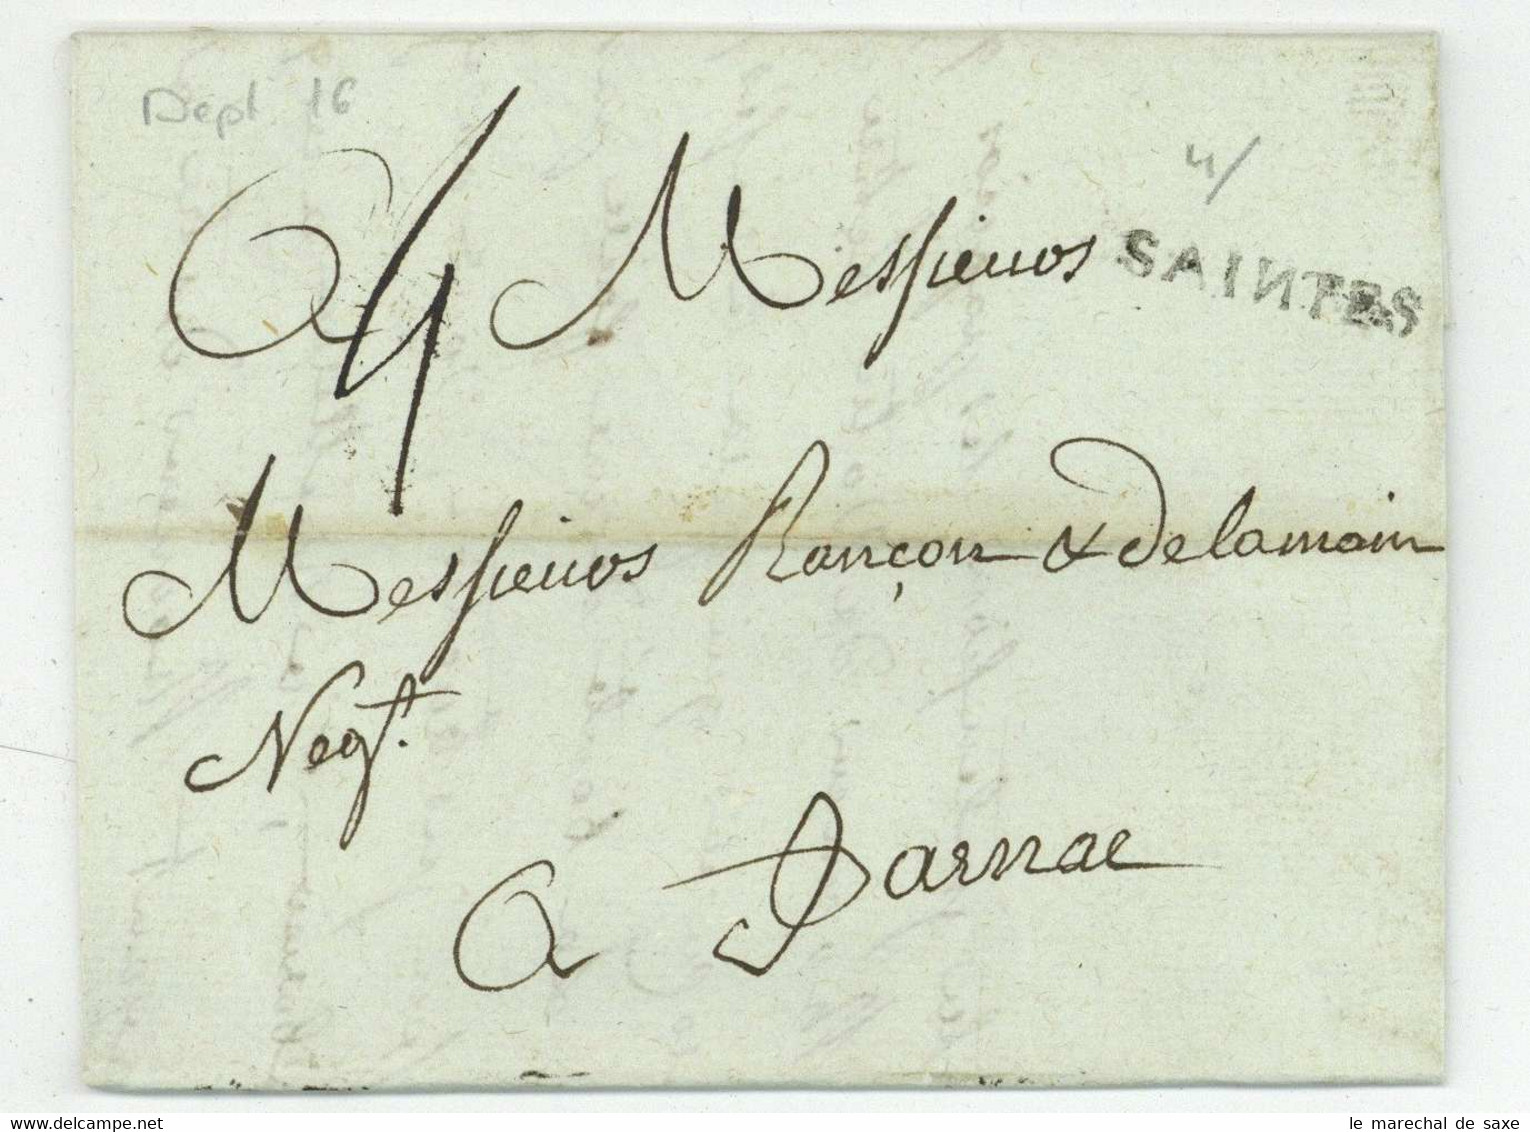 Dept 16
4/
A Messieurs
4
SAINTES
Messieurs Rançon & Delamain
Negt.
A Jarnac
delcampe.net
le marechal de saxe